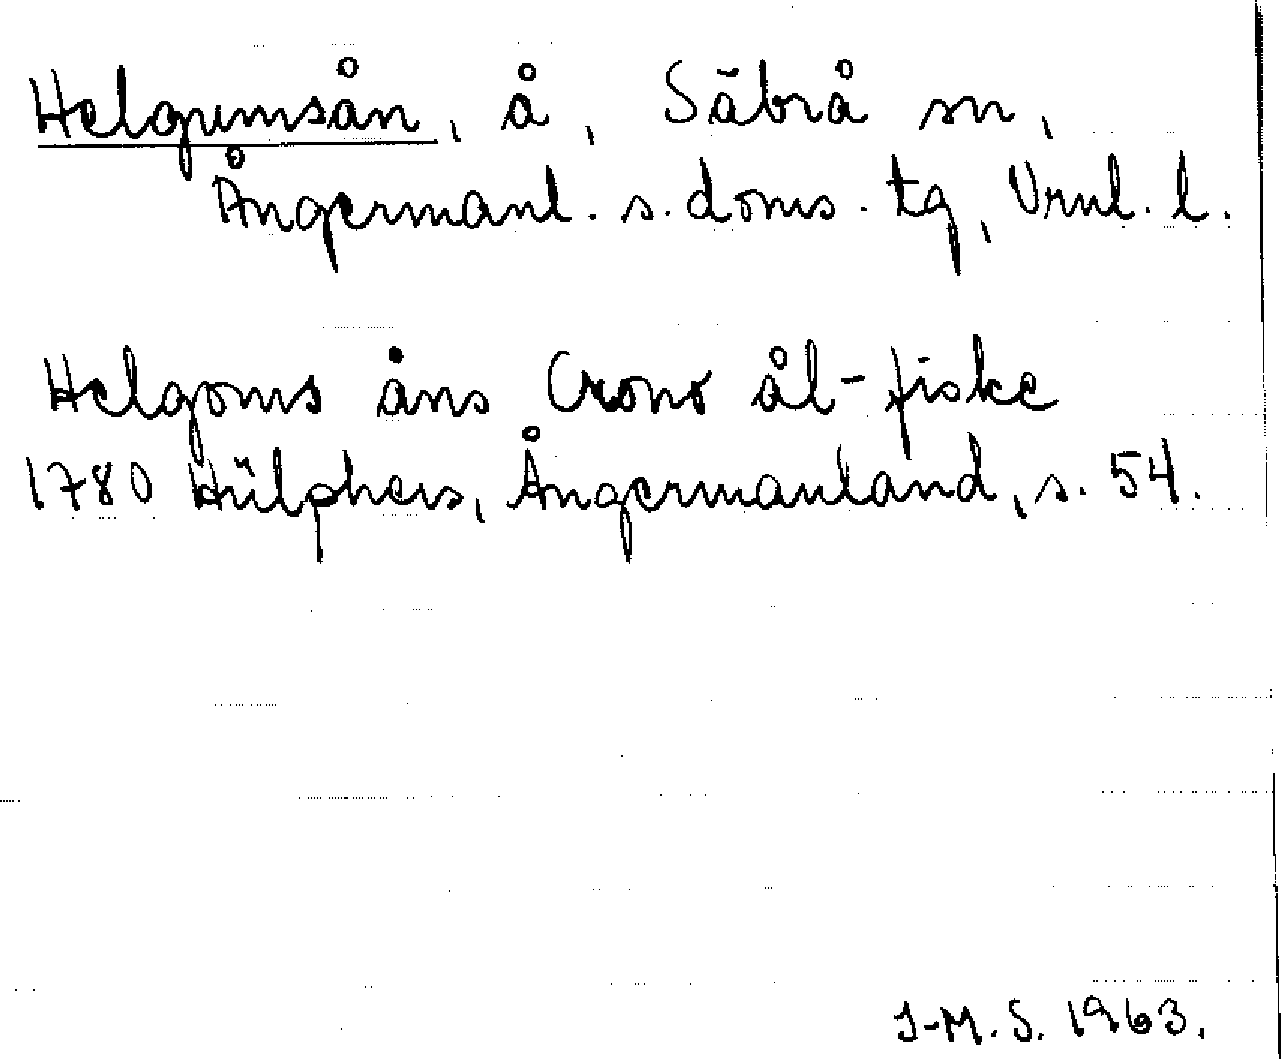 Helgumsån, å, Säbrå sn,
Ångermanl. s. doms. tg, Vrnl. l.
Helgoms åns Crono ål-fiske
1780 Hülphers, Ångermanland, s. 54.
I-M. S. 1963.